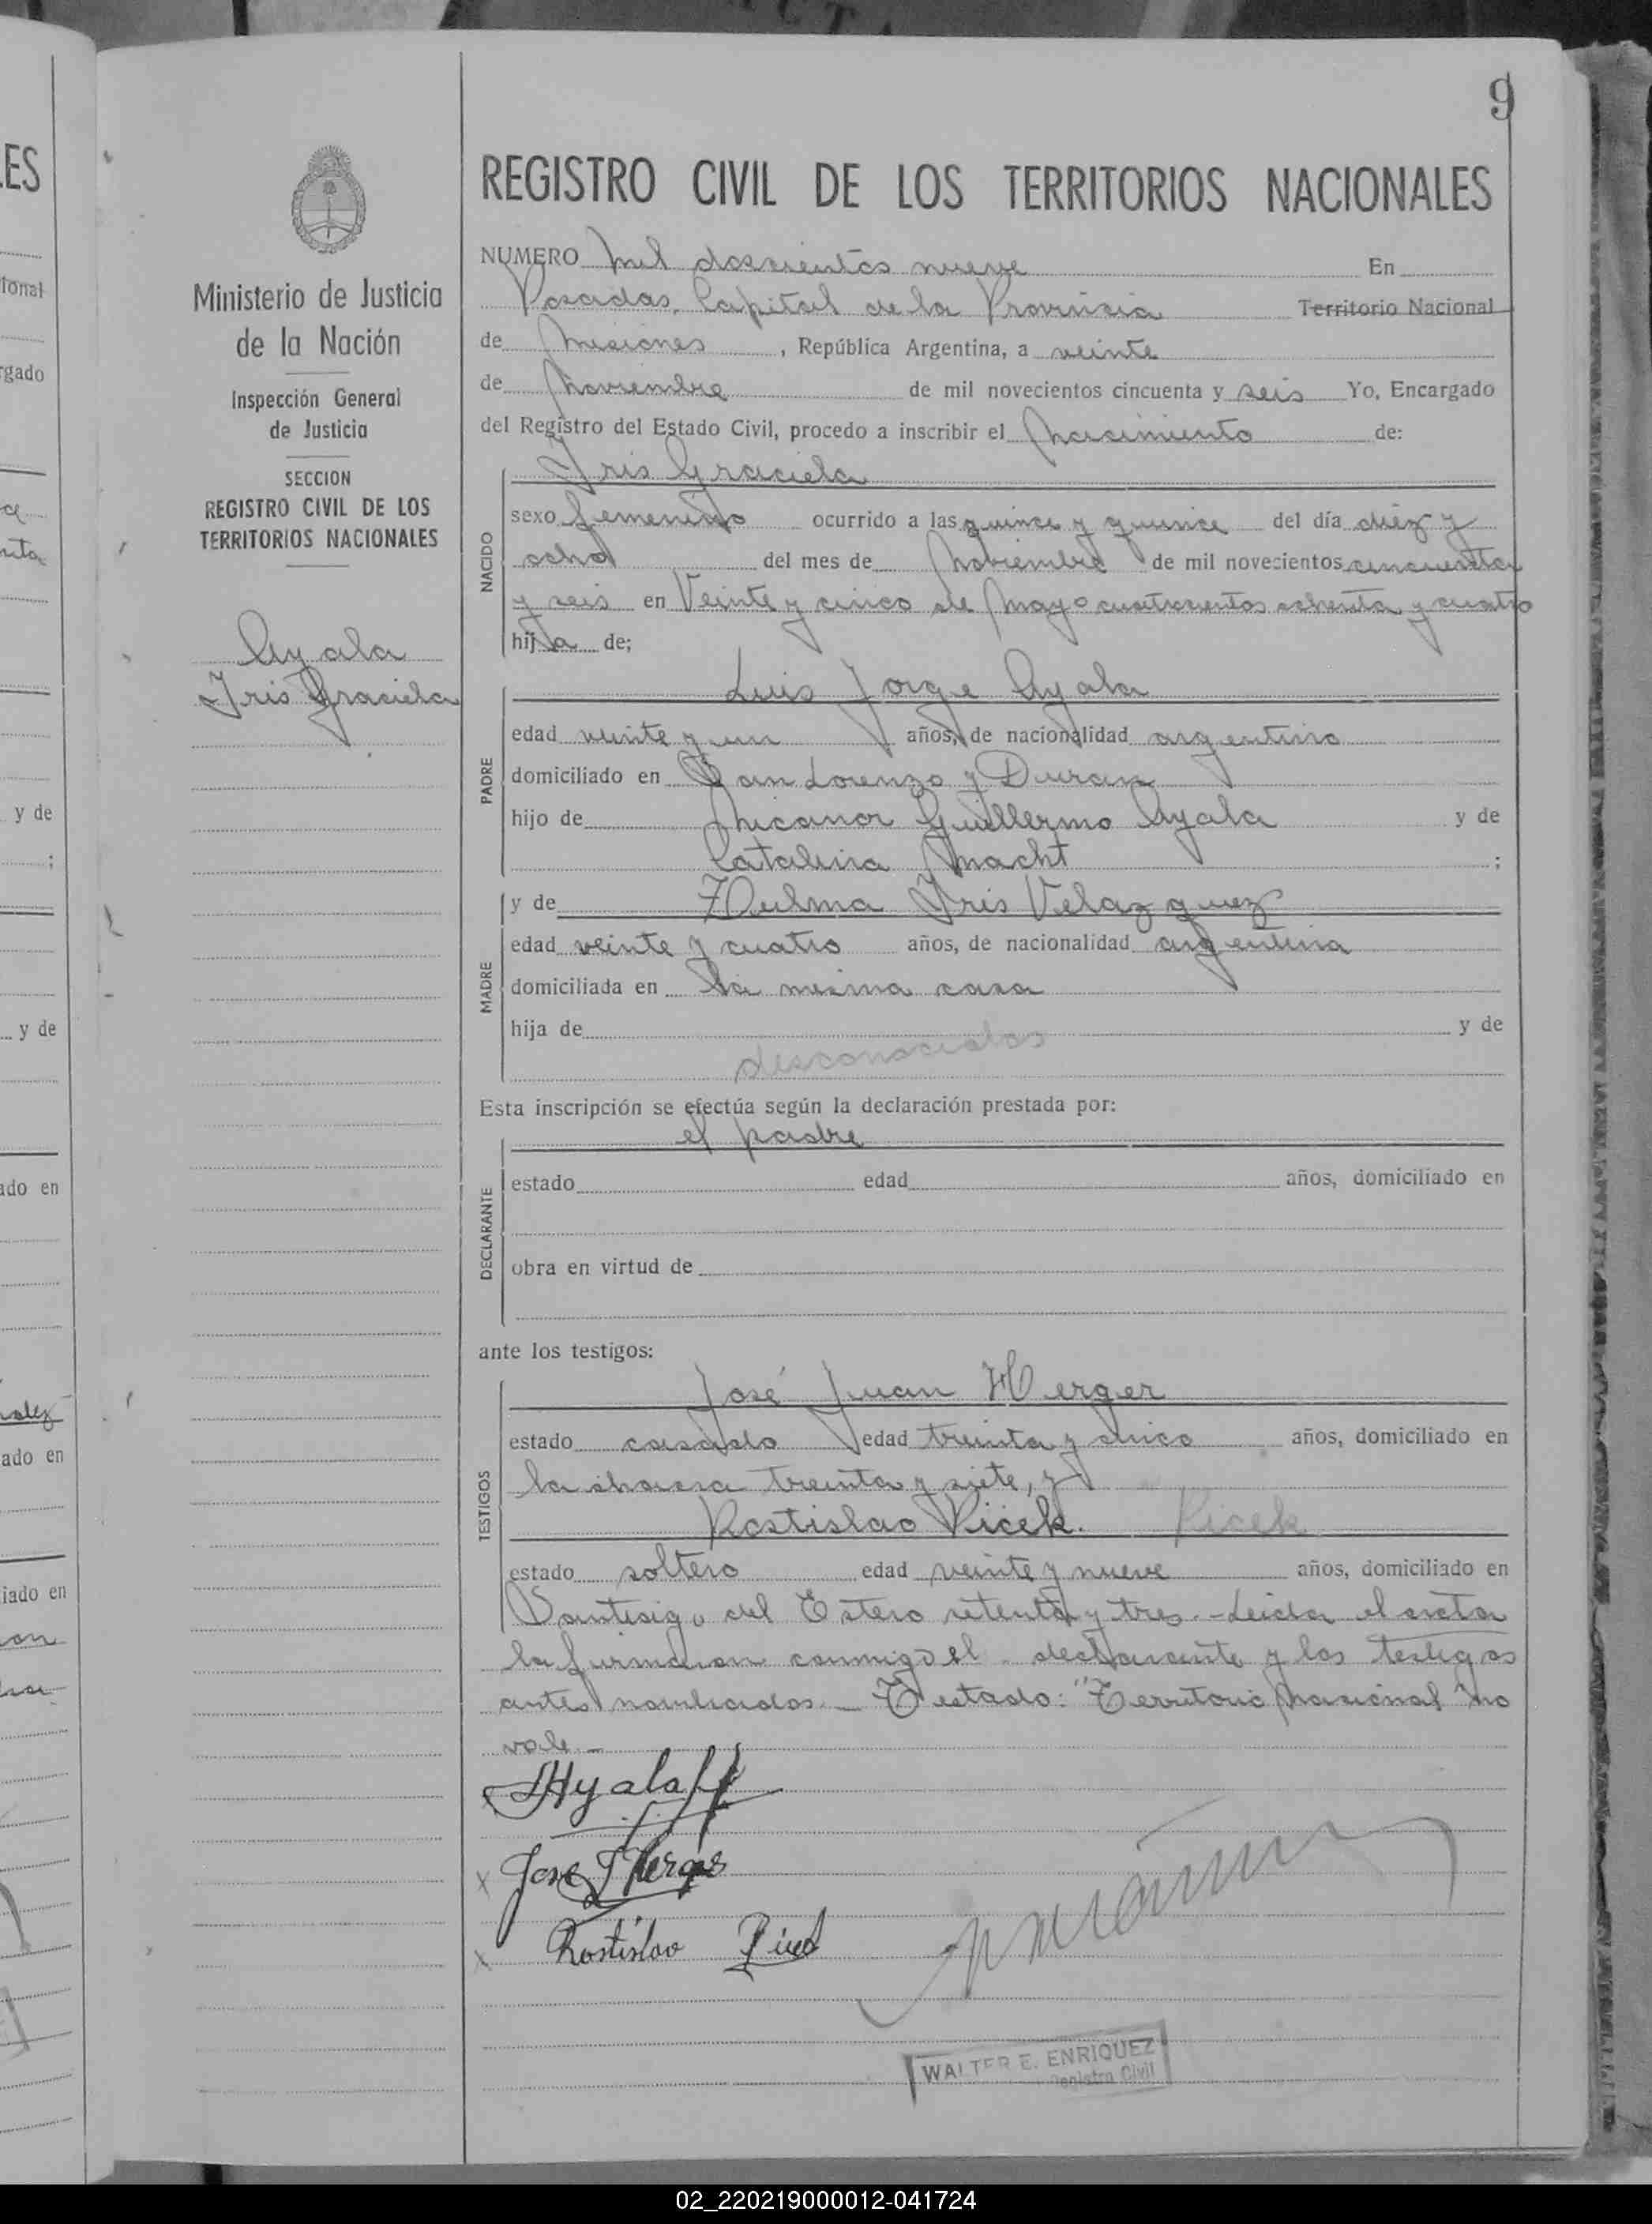 9
REGISTRO CIVIL DE LOS TERRITORIOS NACIONALES
Ministerio de Justicia
de la Nación
Inspección General
de Justicia
SECCION
REGISTRO CIVIL DE LOS
TERRITORIOS NACIONALES
Ayala
Iris Graciela
NUMERO Mil doscientos nueve En
Posadas, Capital de la Provincia Territorio Nacional
de Misiones, República Argentina, a veinte
de Noviembre de mil novecientos cincuenta y seis Yo, Encargado
del Registro del Estado Civil, procedo a inscribir el Nacimiento de:
NACIDO
Iris Graciela
sexo femenino ocurrido a las quince y quince del día diéz y
ocho del mes de Noviembre de mil novecientos cincuenta
y seis en Veinte y cinco de Mayo cuatrocientos ochenta y cuatro
hija de;
PADRE
Luis Jorge Ayala
edad veinte y un años, de nacionalidad argentino
domiciliado en San Lorenzo y Duran
hijo de Nicanor Guillermo Ayala y de
Catalina Macht ;
MADRE
y de Zulma Iris Velazquez
edad veinte y cuatro años, de nacionalidad argentina
domiciliada en la misma casa
hija de y de
desconocidos
Esta inscripción se efectúa según la declaración prestada por:
DECLARANTE
el padre
estado edad años, domiciliado en
obra en virtud de
ante los testigos:
TESTIGOS
José Juan Herger
estado casado edad treinta y cinco años, domiciliado en
la chacra treinta y siete, y
Rostislao Picek. Picek
estado soltero edad veinte y nueve años, domiciliado en
Santiago del Estero setenta y tres.- Leida el acta
la firmaron conmigo el declarante y los testigos
antes nombrados.- Testado: "Territorio Nacional" no
vale.-
LAyala
Jose J Herger
Rostislav Picek
WALTER E. ENRIQUEZ
Registro Civil
02_220219000012-041724